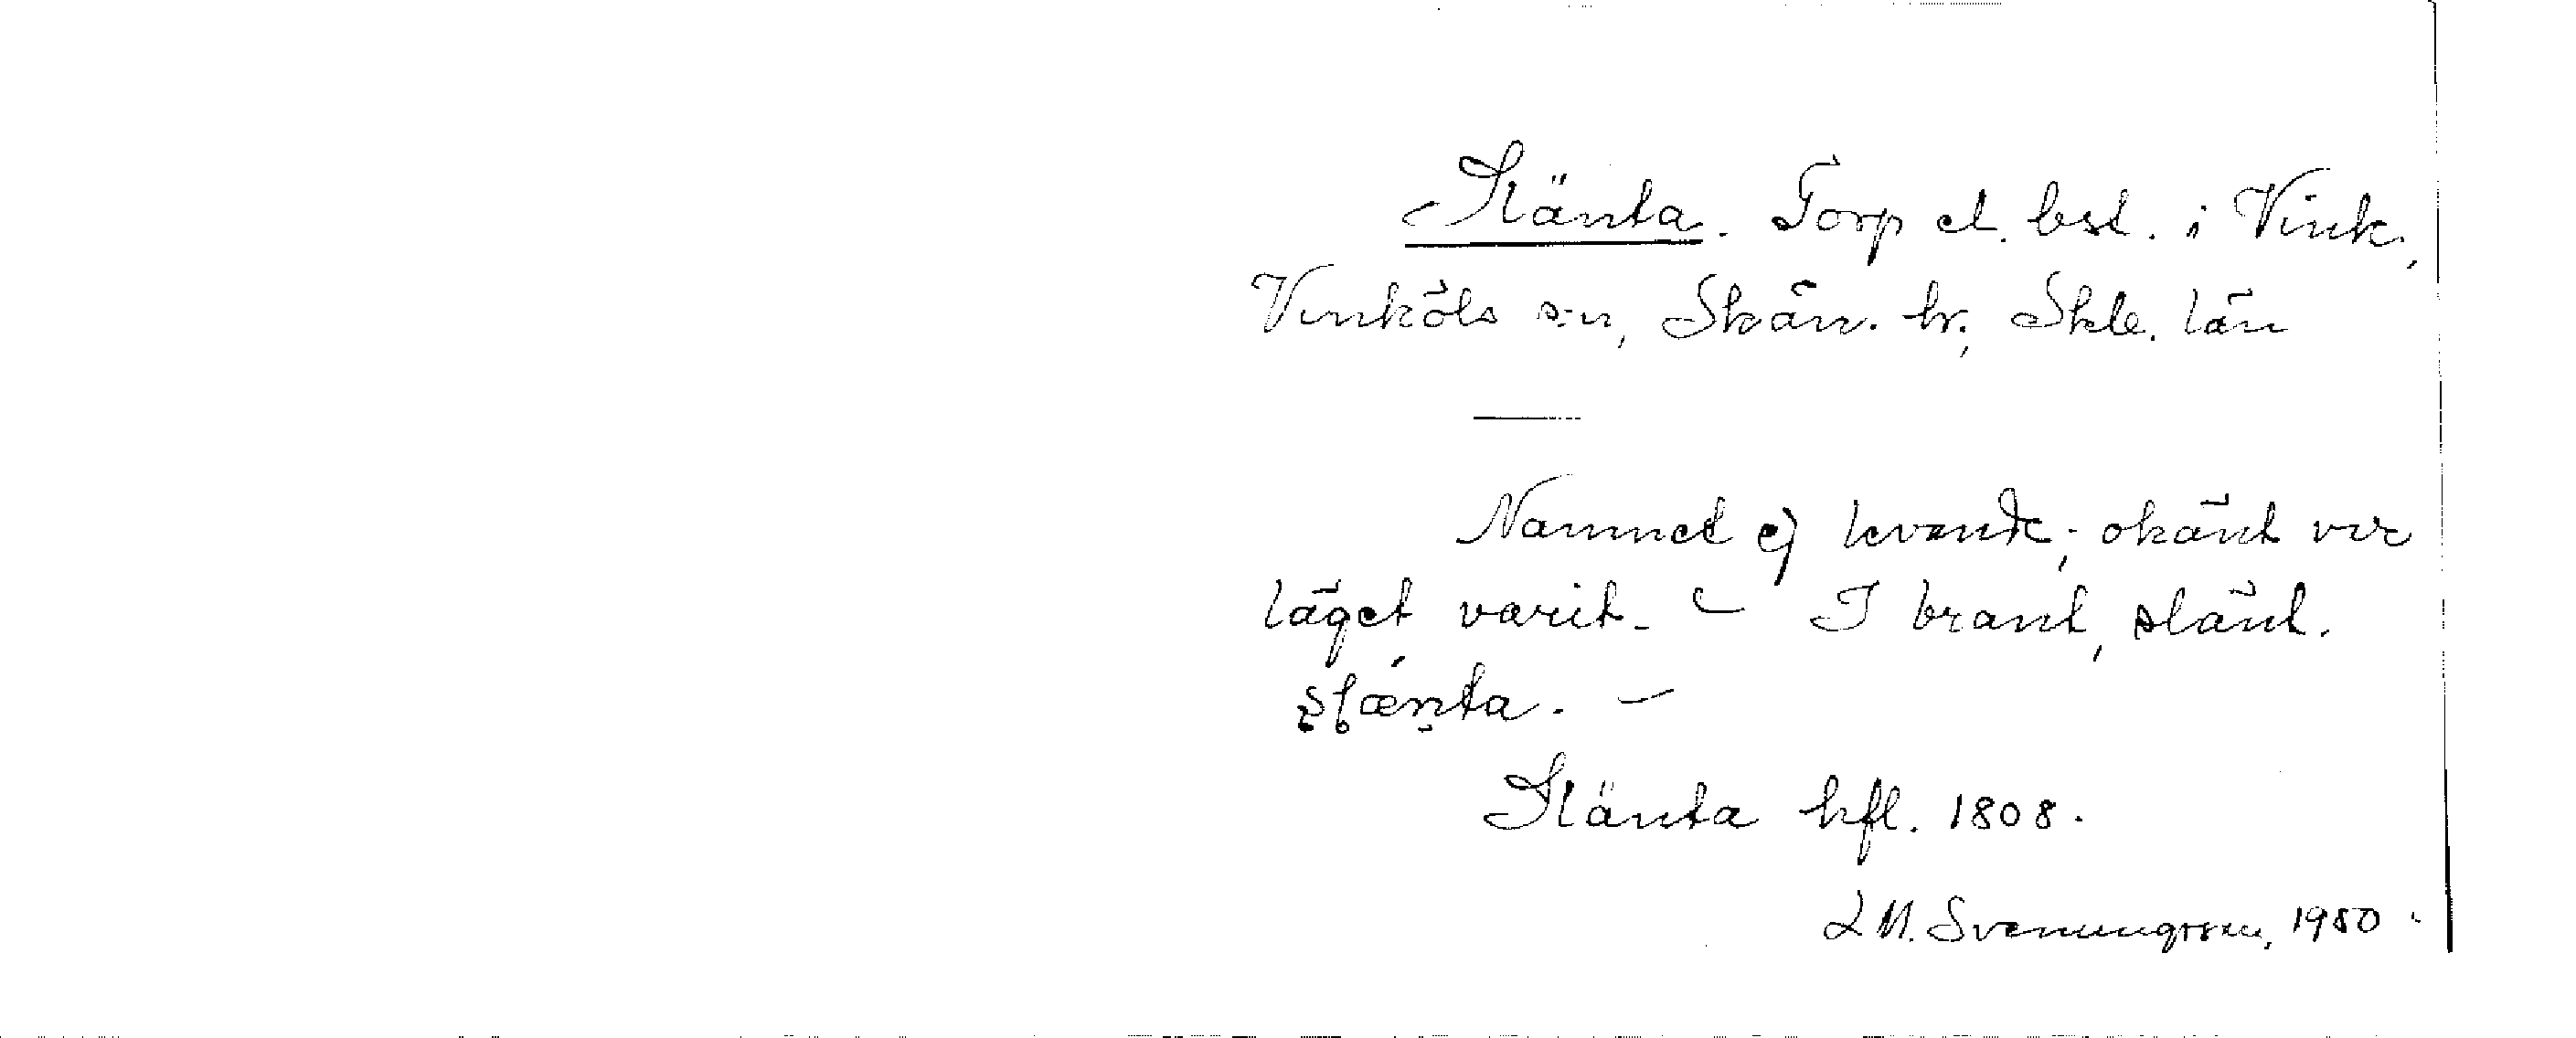 Slänta. Torp el. bst. i Vink.,
Vinköls s:n, Skån. hr., Skb. län
Namnet ej levande; okänt var
läget varit. – I brant, slänt.
slænta. –
Slänta hfl. 1808.
L M. Svenungsson, 1950.